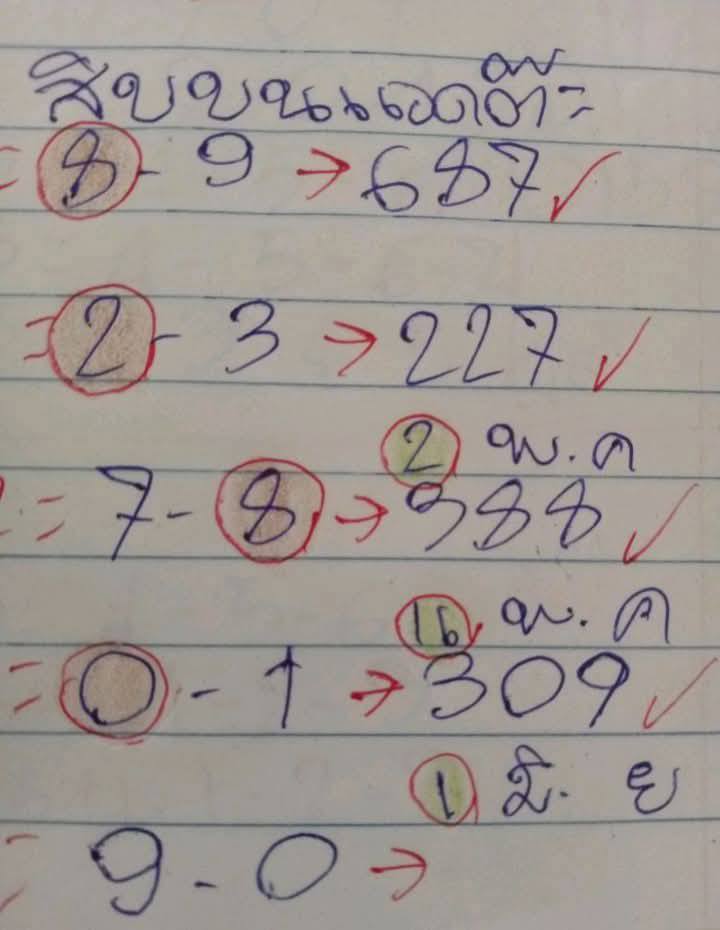 สิบบน
= 8 - 9 → 687 ✓
= 2 - 3 → 227 ✓
2 พ.ค
= 7 - 8 → 988 ✓
16 พ.ค
= 0 - 1 → 309 ✓
1 มิ.ย
= 9 - 0 →